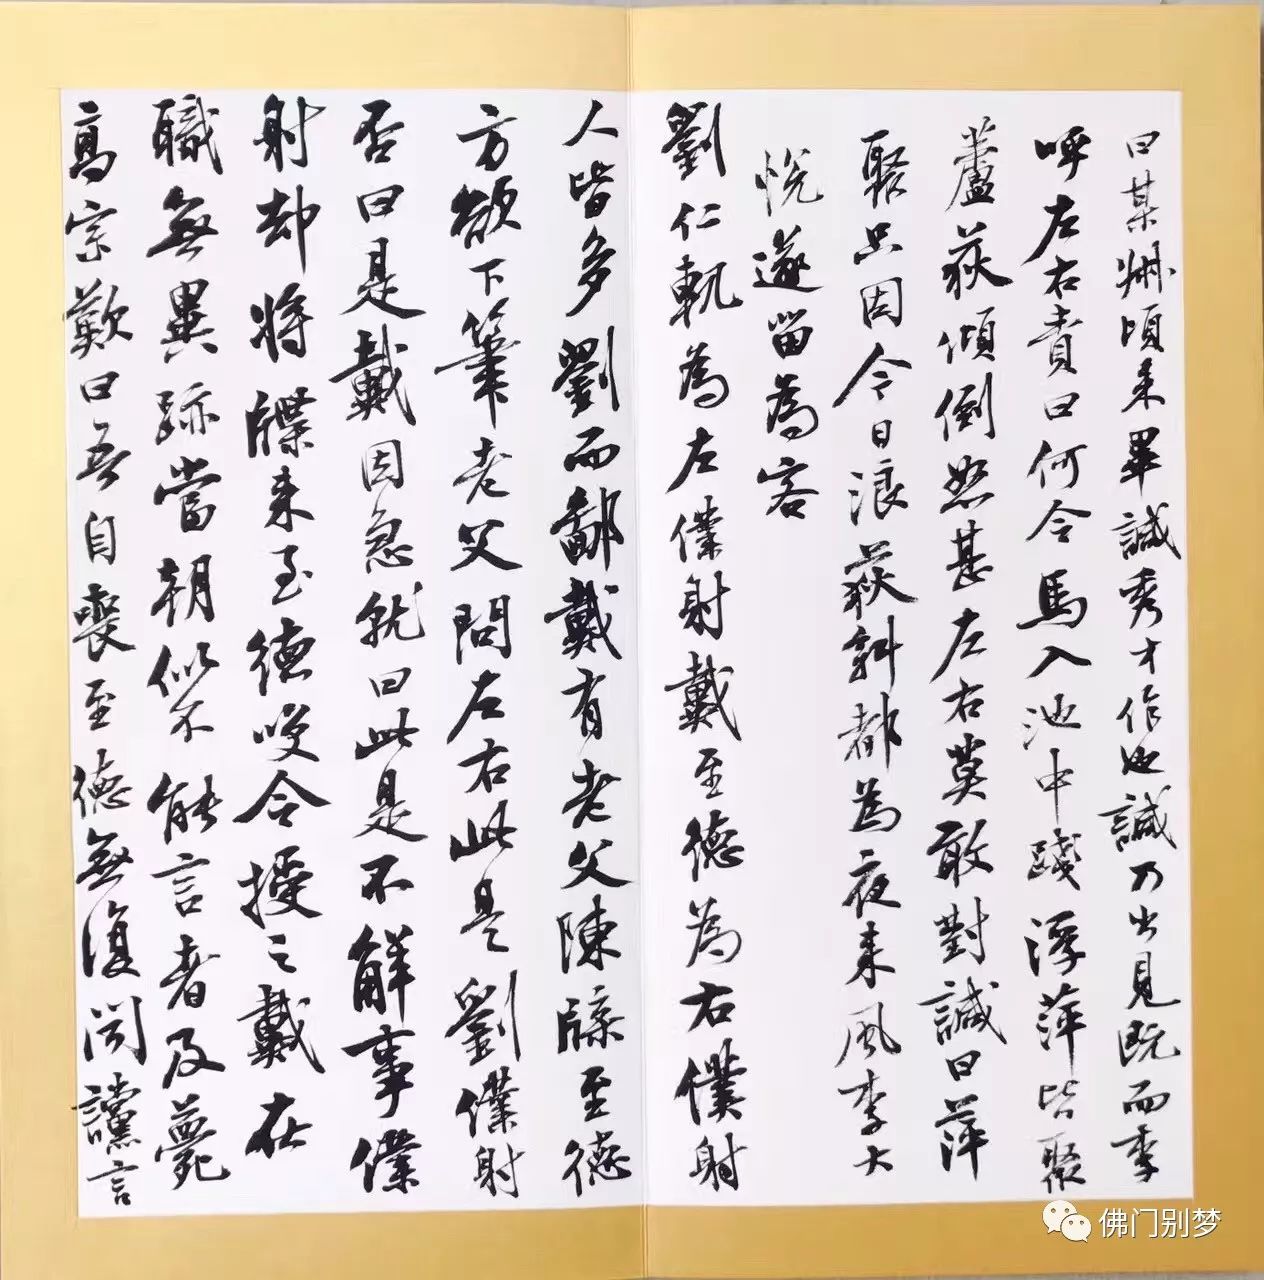 曰某州頃来畢諴秀才作池諴乃出見既而李
呼左右責曰何令馬入池中踐浮萍皆聚
蘆荻傾倒怒甚左右莫敢對諴曰萍
聚只因今日浪荻斜都為夜来風李大
悦遂留為客
劉仁軌為左僕射戴至德為右僕射
人皆多劉而鄙戴有老父陳牒至德
方欲下筆老父問左右此是劉僕射
否曰是戴因急就曰此是不解事僕
射却將牒来至德咲令授之戴在
職無異跡當朝似不能言者及薨
高宗歎曰吾自喪至德無復聞讜言
佛门别梦